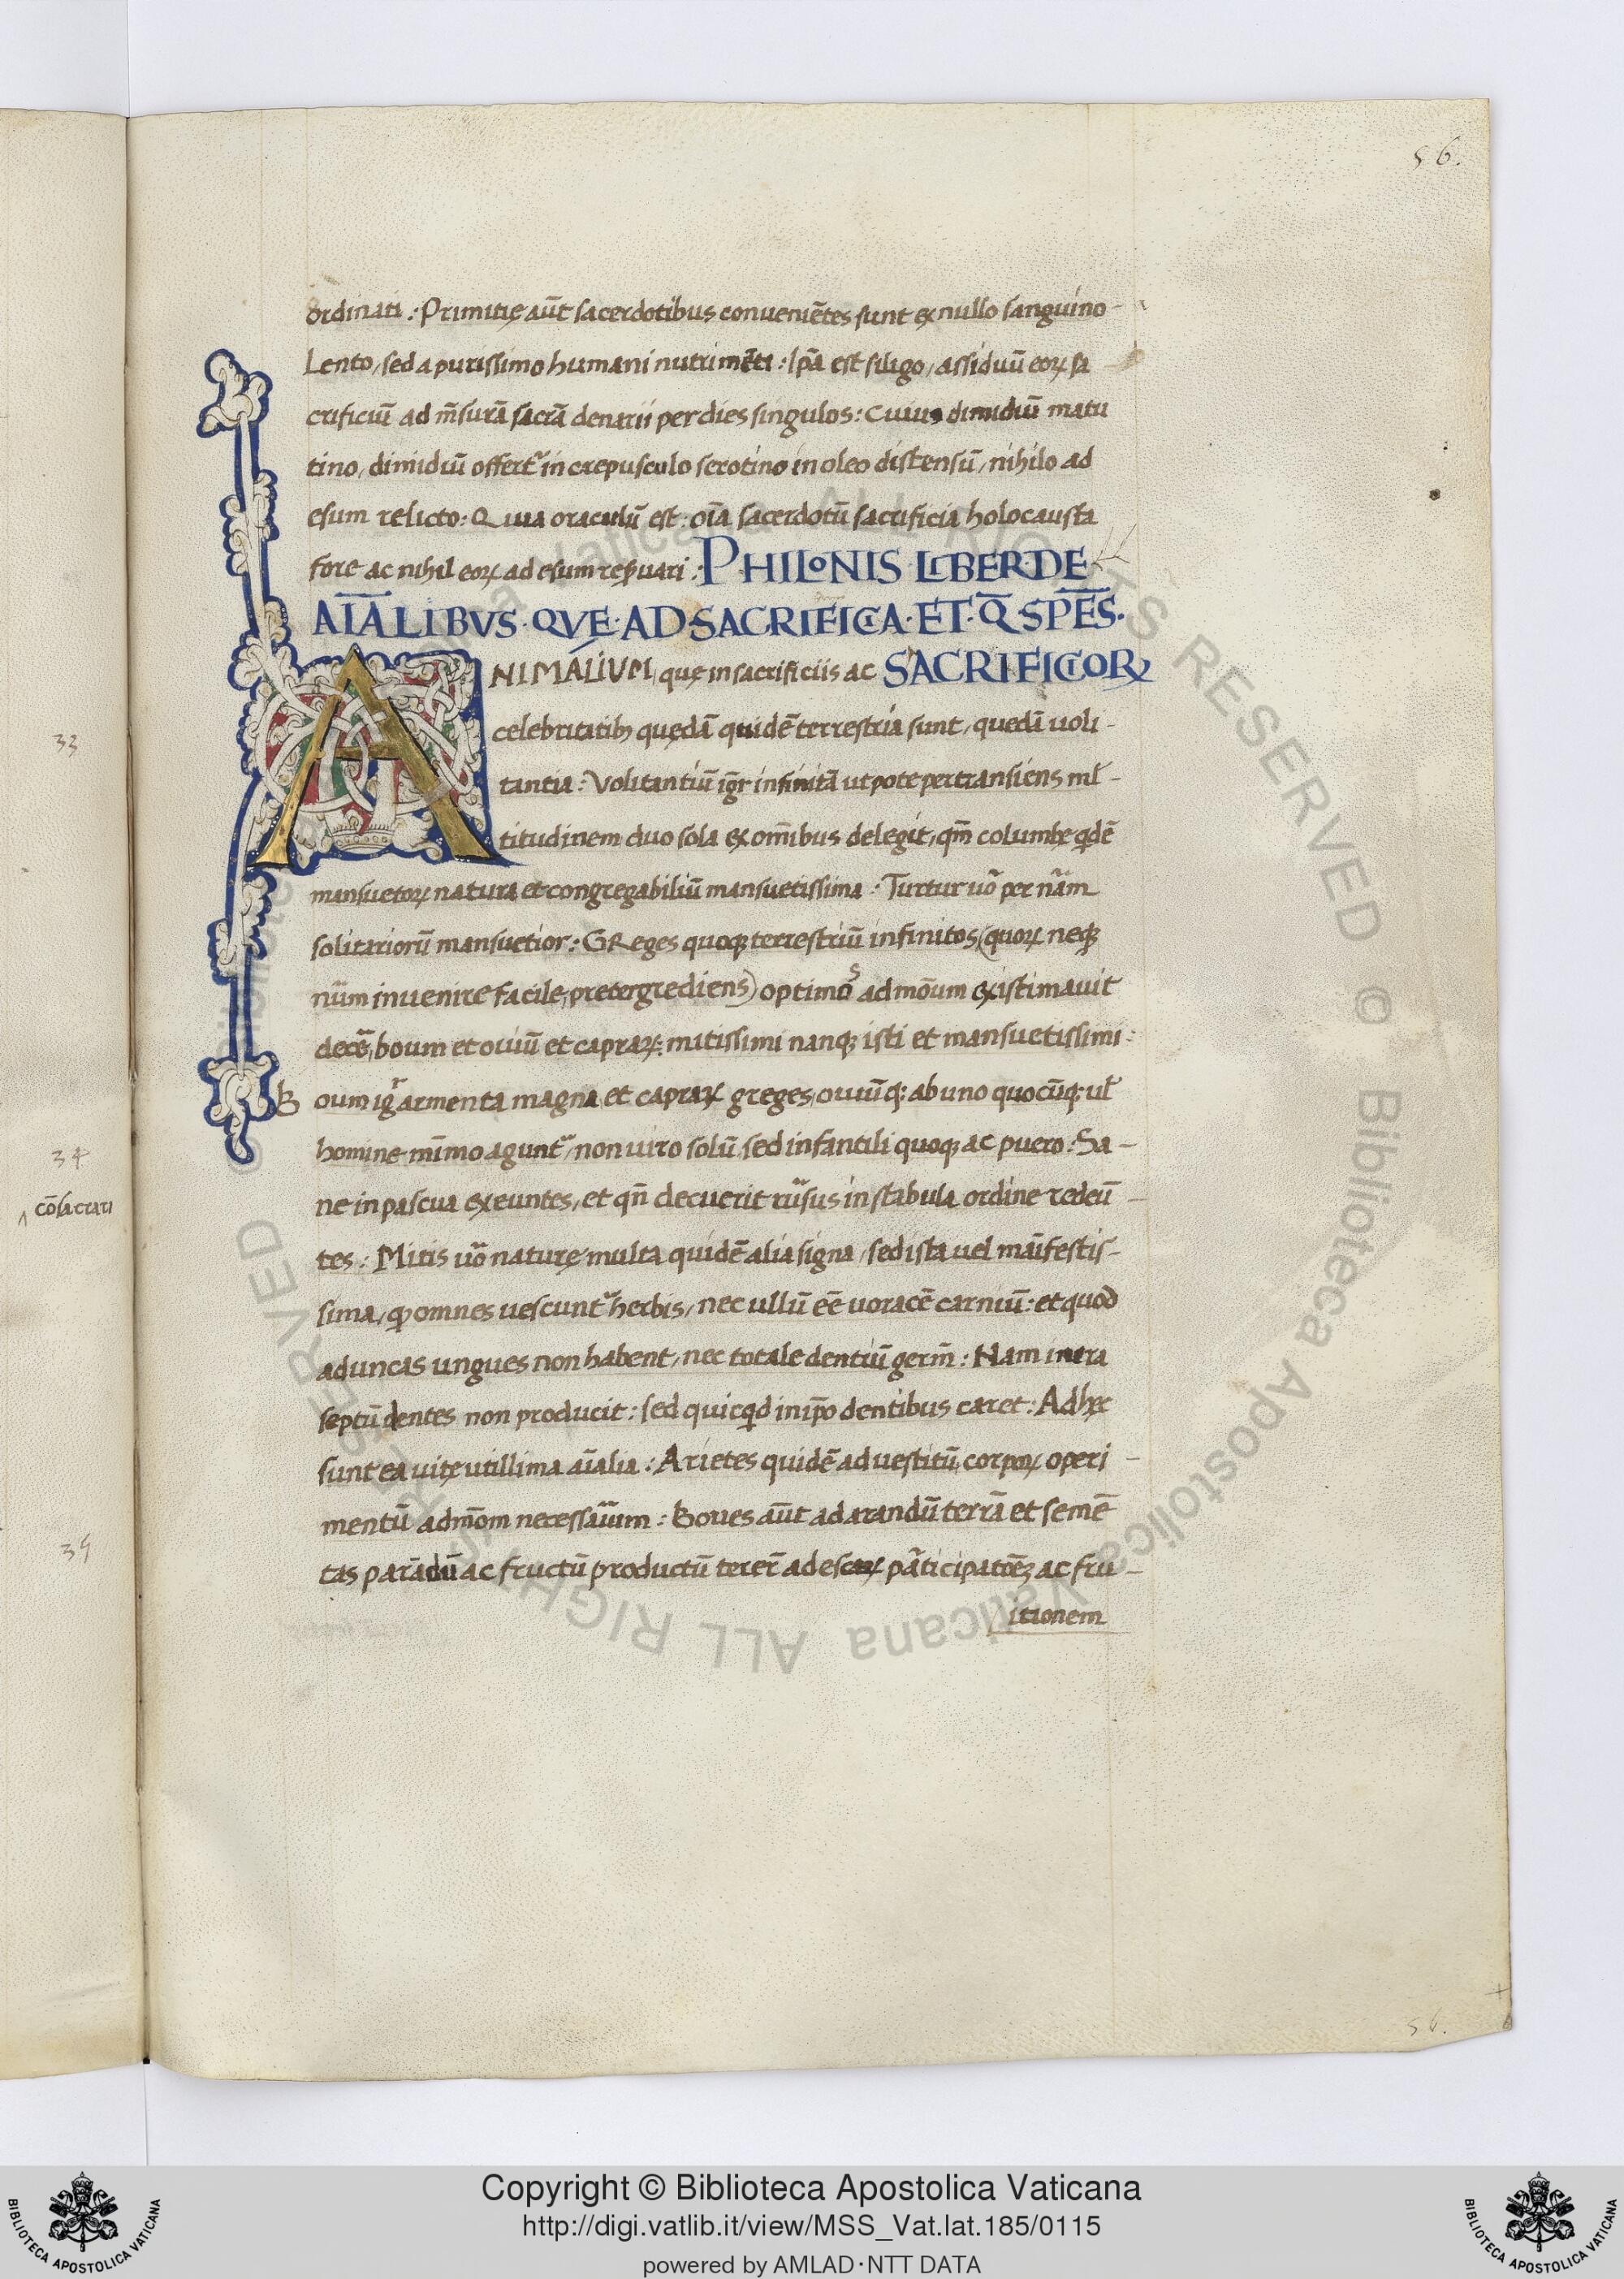 56.
ordinati: Primitię aūt sacerdotibus conueniētes sunt ex nullo sanguino-
Lento, sed a purissimo humani nutrimēti: Ip̄a est siligo, assiduū eoꝝ sa
crificiū ad m̄surā sacrā denarii per dies singulos: Cuius dimidiū matu
tino, dimidiū offert᷑ in crepusculo serotino in oleo distensū, nihilo ad
esum relicto: Quia oraculū est: oīa sacerdotū sacrificia holocausta
fore ac nihil eoꝝ ad esum reẜuari: PHILONIS LIBER·DE
AĪALIBVS·QVE·AD·SACRIFICA·ET·Q̄ SPĒS.
ANIMALIUM, quę in sacrificiis ac SACRIFICIOꝝ
celebritatibꝫ quędā quidē terrestria sunt, quedā uoli-
tantia: Volitantiū ig̅r infinitā utpote pertransiens ml̄-
titudinem duo sola ex om̄ibus delegit, qm̄ columbę qdē
mansuetoꝝ natura et congregabiliū mansuetissima: Turtur uō per nām
solitariorū mansuetior: GReges quoqꝫ terrestriū infinitos, (quoꝝ neqꝫ
nūm inuenire facile, pretergrediens) optimos ad mōum existimauit
decē, boum et ouiū et capraꝝ: mitissimi nanqꝫ isti et mansuetissimi:
Boum ig̅r armenta magna, et capraꝝ greges, ouiūqꝫ: ab uno quocūqꝫ: ul̄
homine mīmo agunt᷑, non uiro solū, sed infantili quoqꝫ ac puero: Sa-
ne in pascua exeuntes, et qn̄ decuerit rūsus in stabula ordine redeū-
tes: Mitis uō naturę multa quidē alia signa, sed ista uel māifestis-
sima, ꝙ omnes uescunt᷑ herbis, nec ullū eē uoracē carniū: et quod
aduncas ungues non habent, nec totale dentiū germ̄: Nam intra
septū dentes non producit: sed quicqd in ip̄o dentibus caret: Ad hęc
sunt ea uitę utillima aīalia: Arietes quidē ad uestitū, corpoꝝ operi-
mentū admōm necessāium: Boues aūt ad arandū terrā et semē
tas parādū ac fructū productū terer̄ ad escaꝝ pāticipatōēꝫ ac fru-
itionem
33
34
cōsacrati
56.
Copyright © Biblioteca Apostolica Vaticana
http://digi.vatlib.it/view/MSS_Vat.lat.185/0115
powered by AMLAD·NTT DATA
BIBLIOTECA APOSTOLICA VATICANA
BIBLIOTECA APOSTOLICA VATICANA